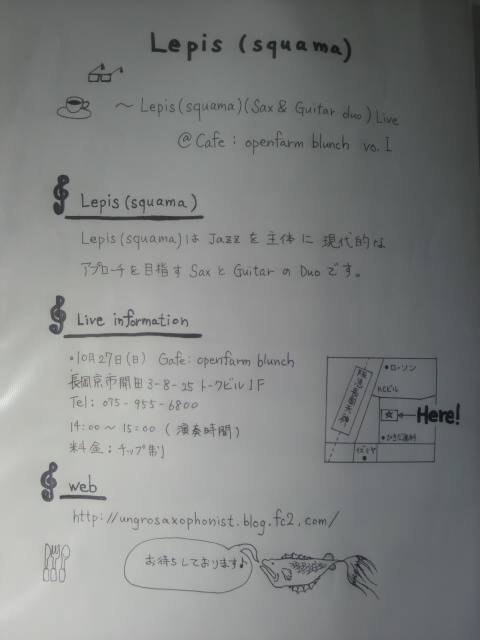 Lepis (squama)
～ Lepis (squama) (Sax & Guitar duo) Live
@ Cafe : openfarm blunch vo. I
Lepis (squama)
Lepis (squama) は Jazz を 主体 に 現代的な
アプローチを目指す Sax と Guitar の Duo です。
Live information
・10月27日(日) Cafe: openfarm blunch
長岡京市開田 3-8-25 トークビル 1F
Tel: 075-955-6800
14:00 ～ 15:00 (演奏時間)
料金:チップ制
・ローソン
HCビル
阪急長岡天神
Here!
イズミヤ
web
http://ungrosaxophonist.blog.fc2.com/
お待ちしております♪